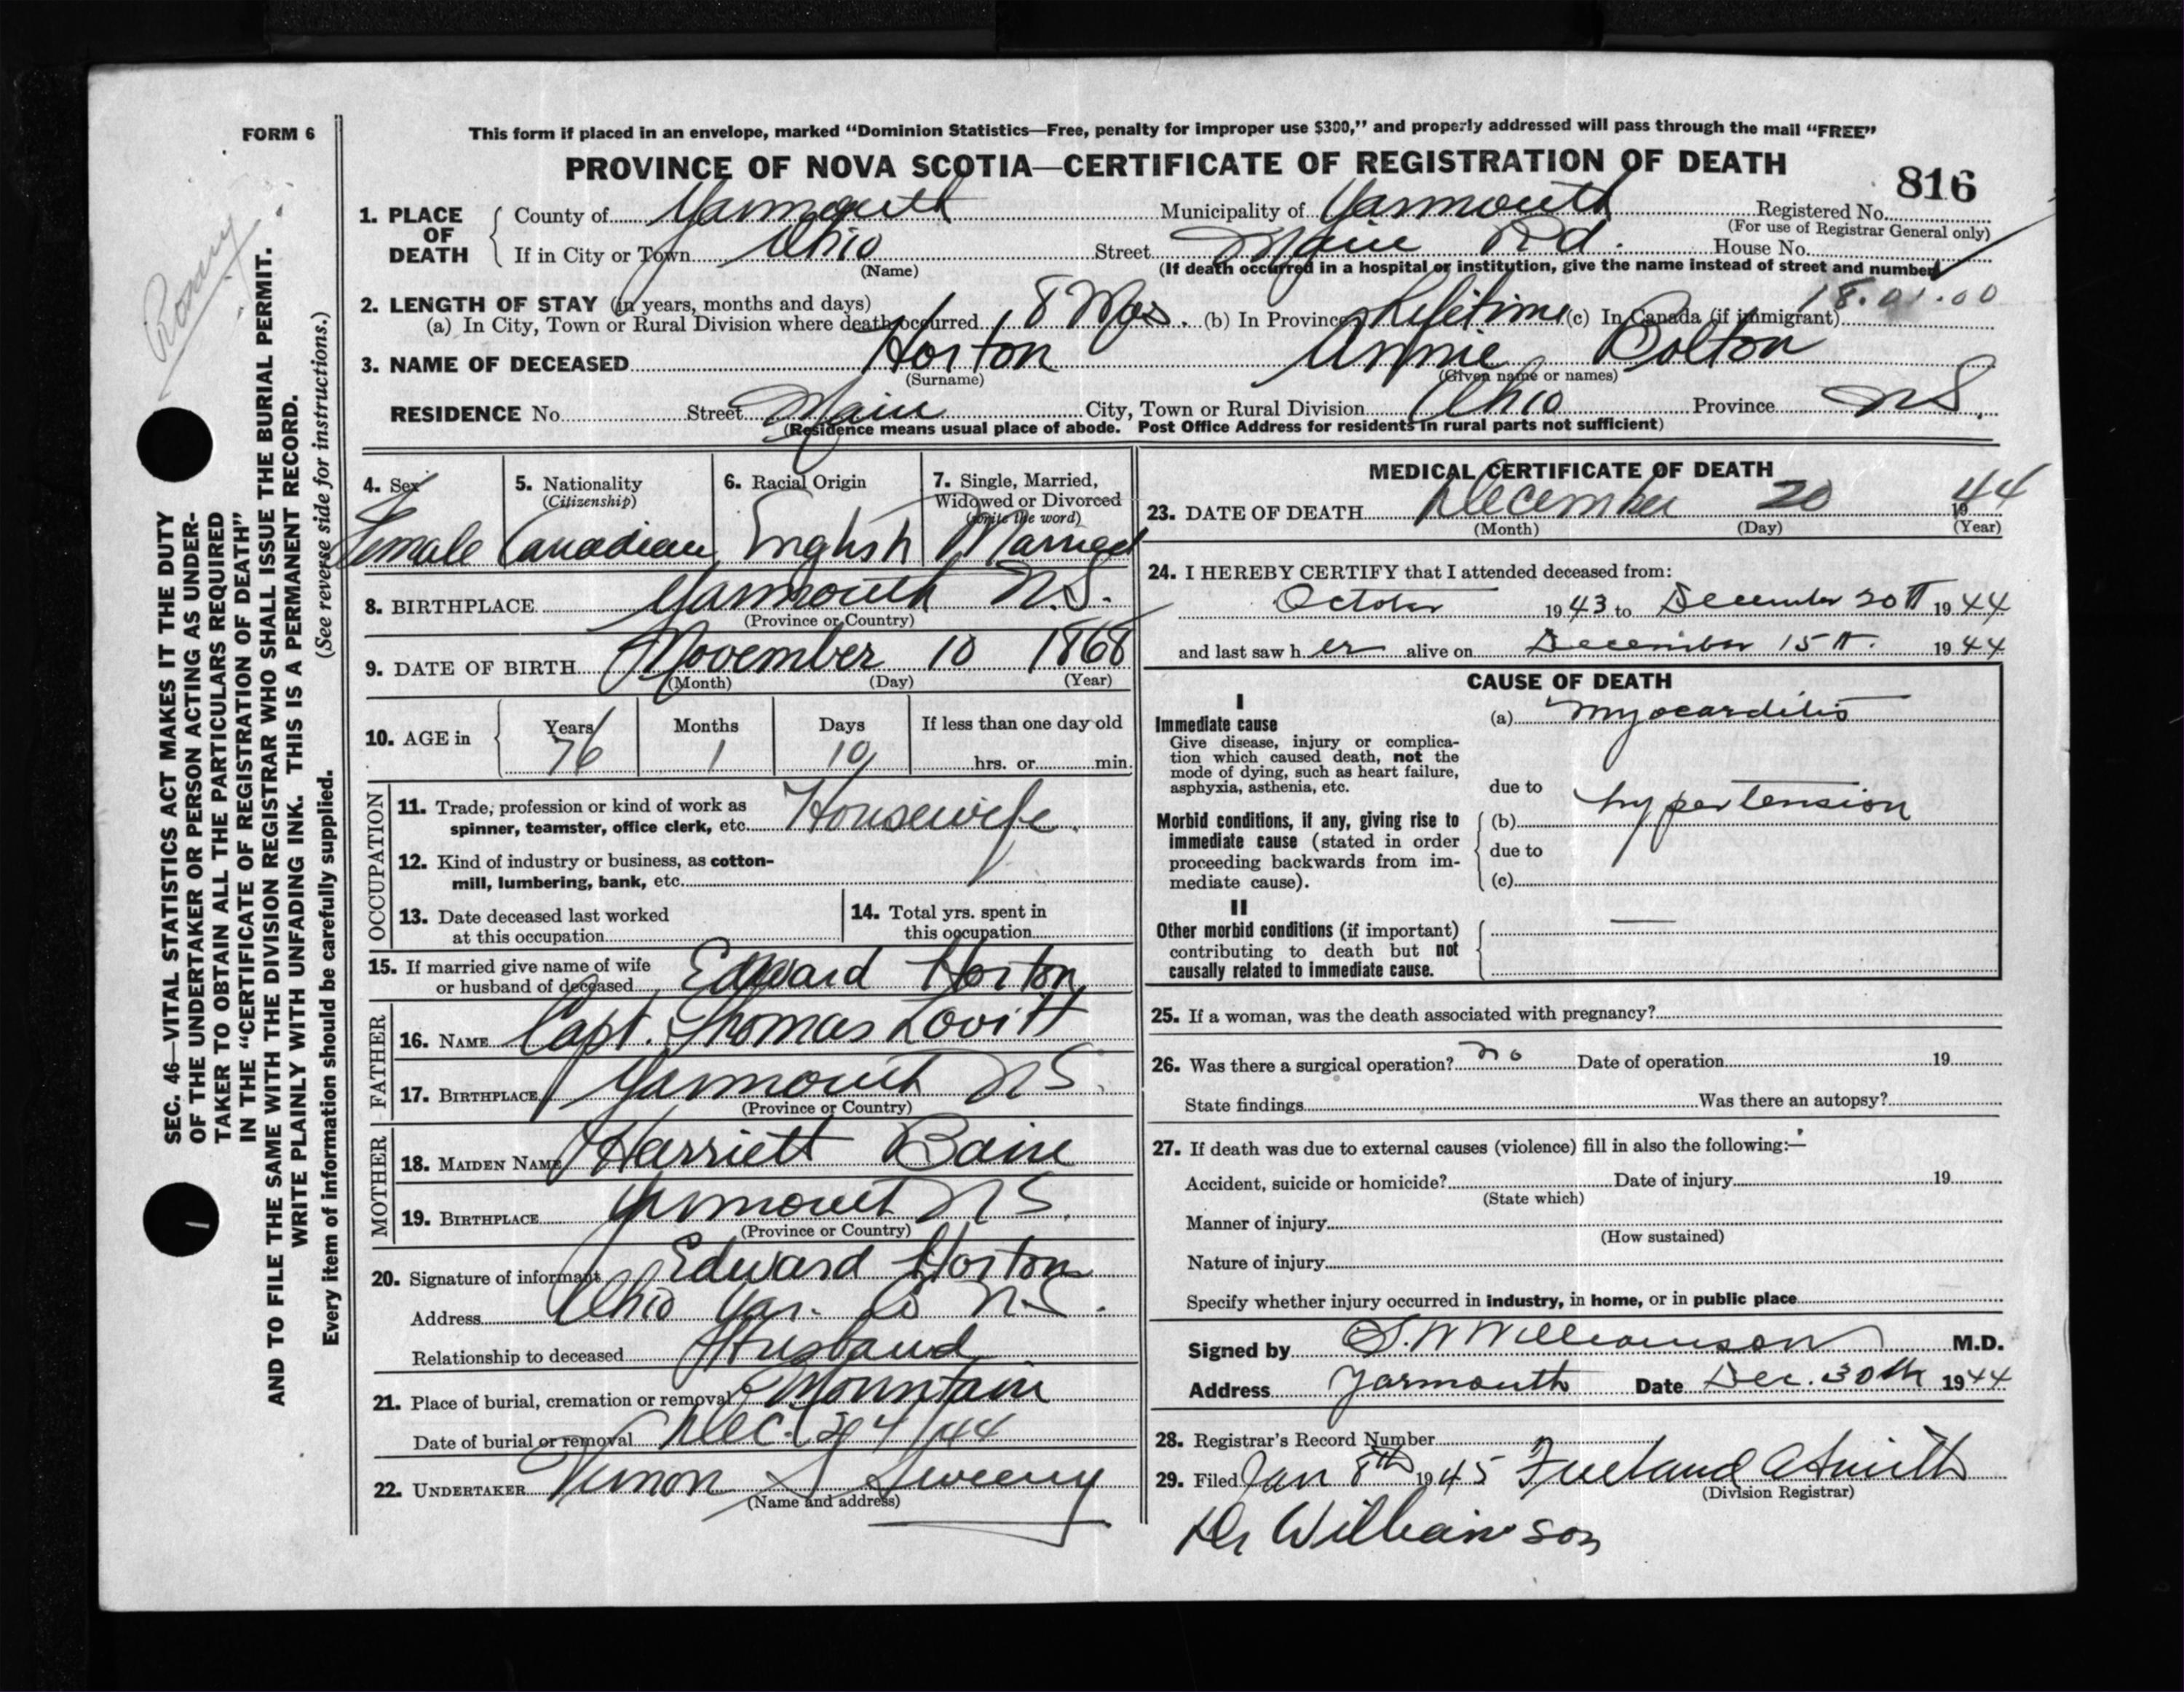 FORM 6
This form if placed in an envelope, marked “Dominion Statistics—Free, penalty for improper use $300,” and properly addressed will pass through the mail “FREE”
PROVINCE OF NOVA SCOTIA—CERTIFICATE OF REGISTRATION OF DEATH
816
1. PLACE OF DEATH
County of Yarmouth Municipality of Yarmouth Registered No.
(For use of Registrar General only)
If in City or Town Ohio Street Main Rd. House No.
(Name) (If death occurred in a hospital or institution, give the name instead of street and number)
18.01.00
2. LENGTH OF STAY (in years, months and days)
(a) In City, Town or Rural Division where death occurred 8 Mos. (b) In Province Lifetime (c) In Canada (if immigrant)
3. NAME OF DECEASED Horton Annie Bolton
(Surname) (Given name or names)
RESIDENCE No. Street Main City, Town or Rural Division Ohio Province N.S.
(Residence means usual place of abode. Post Office Address for residents in rural parts not sufficient)
4. Sex 5. Nationality (Citizenship) 6. Racial Origin 7. Single, Married, Widowed or Divorced (write the word)
Female Canadian English Married
8. BIRTHPLACE Yarmouth N.S.
(Province or Country)
9. DATE OF BIRTH November 10 1868
(Month) (Day) (Year)
10. AGE in Years Months Days If less than one day old
76 1 10 hrs. or min.
OCCUPATION
11. Trade, profession or kind of work as
spinner, teamster, office clerk, etc. Housewife
12. Kind of industry or business, as cotton-
mill, lumbering, bank, etc.
13. Date deceased last worked
at this occupation
14. Total yrs. spent in
this occupation
15. If married give name of wife
or husband of deceased Edward Horton
FATHER
16. NAME Capt. Thomas Lovitt
17. BIRTHPLACE Yarmouth N.S.
(Province or Country)
MOTHER
18. MAIDEN NAME Harriett Baine
19. BIRTHPLACE Yarmouth N.S.
(Province or Country)
20. Signature of informant Edward Horton
Address Ohio Yar. Co N.S.
Relationship to deceased Husband
21. Place of burial, cremation or removal Mountain
Date of burial or removal Dec. 24/44
22. UNDERTAKER Vernon S Sweeny
(Name and address)
MEDICAL CERTIFICATE OF DEATH
23. DATE OF DEATH December 20 1944
(Month) (Day) (Year)
24. I HEREBY CERTIFY that I attended deceased from:
October 1943 to December 20th 1944
and last saw her alive on December 15th. 1944
CAUSE OF DEATH
I
Immediate cause (a) myocarditis
Give disease, injury or complica-
tion which caused death, not the
mode of dying, such as heart failure,
asphyxia, asthenia, etc.
due to
Morbid conditions, if any, giving rise to
immediate cause (stated in order
proceeding backwards from im-
mediate cause).
(b) hypertension
due to
(c)
II
Other morbid conditions (if important)
contributing to death but not
causally related to immediate cause.
25. If a woman, was the death associated with pregnancy?
26. Was there a surgical operation? no Date of operation 19
State findings Was there an autopsy?
27. If death was due to external causes (violence) fill in also the following:—
Accident, suicide or homicide? Date of injury 19
(State which)
Manner of injury
(How sustained)
Nature of injury
Specify whether injury occurred in industry, in home, or in public place
Signed by S.W Williamson M.D.
Address Yarmouth Date Dec. 30th 1944
28. Registrar’s Record Number
29. Filed Jan 8th 1945 Freeland A Smith
(Division Registrar)
Dr Williamson
SEC. 46—VITAL STATISTICS ACT MAKES IT THE DUTY
OF THE UNDERTAKER OR PERSON ACTING AS UNDER-
TAKER TO OBTAIN ALL THE PARTICULARS REQUIRED
IN THE “CERTIFICATE OF REGISTRATION OF DEATH”
AND TO FILE THE SAME WITH THE DIVISION REGISTRAR WHO SHALL ISSUE THE BURIAL PERMIT.
WRITE PLAINLY WITH UNFADING INK. THIS IS A PERMANENT RECORD.
Every item of information should be carefully supplied. (See reverse side for instructions.)